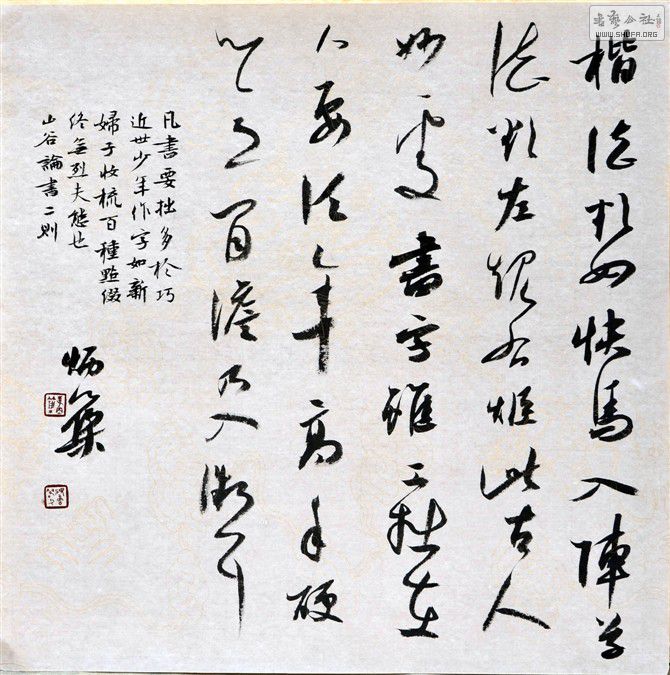 楷法欲如快馬入陣草
法欲左規右矩此古人
妙處書字雖工拙在
人要須年高手硬
心意閒澹乃入微耳
凡書要拙多於巧
近世少年作字如新
婦子妝梳百種點綴
終無烈夫態也
山谷論書二則
炳
书艺公社
WWW.SHUFA.ORG